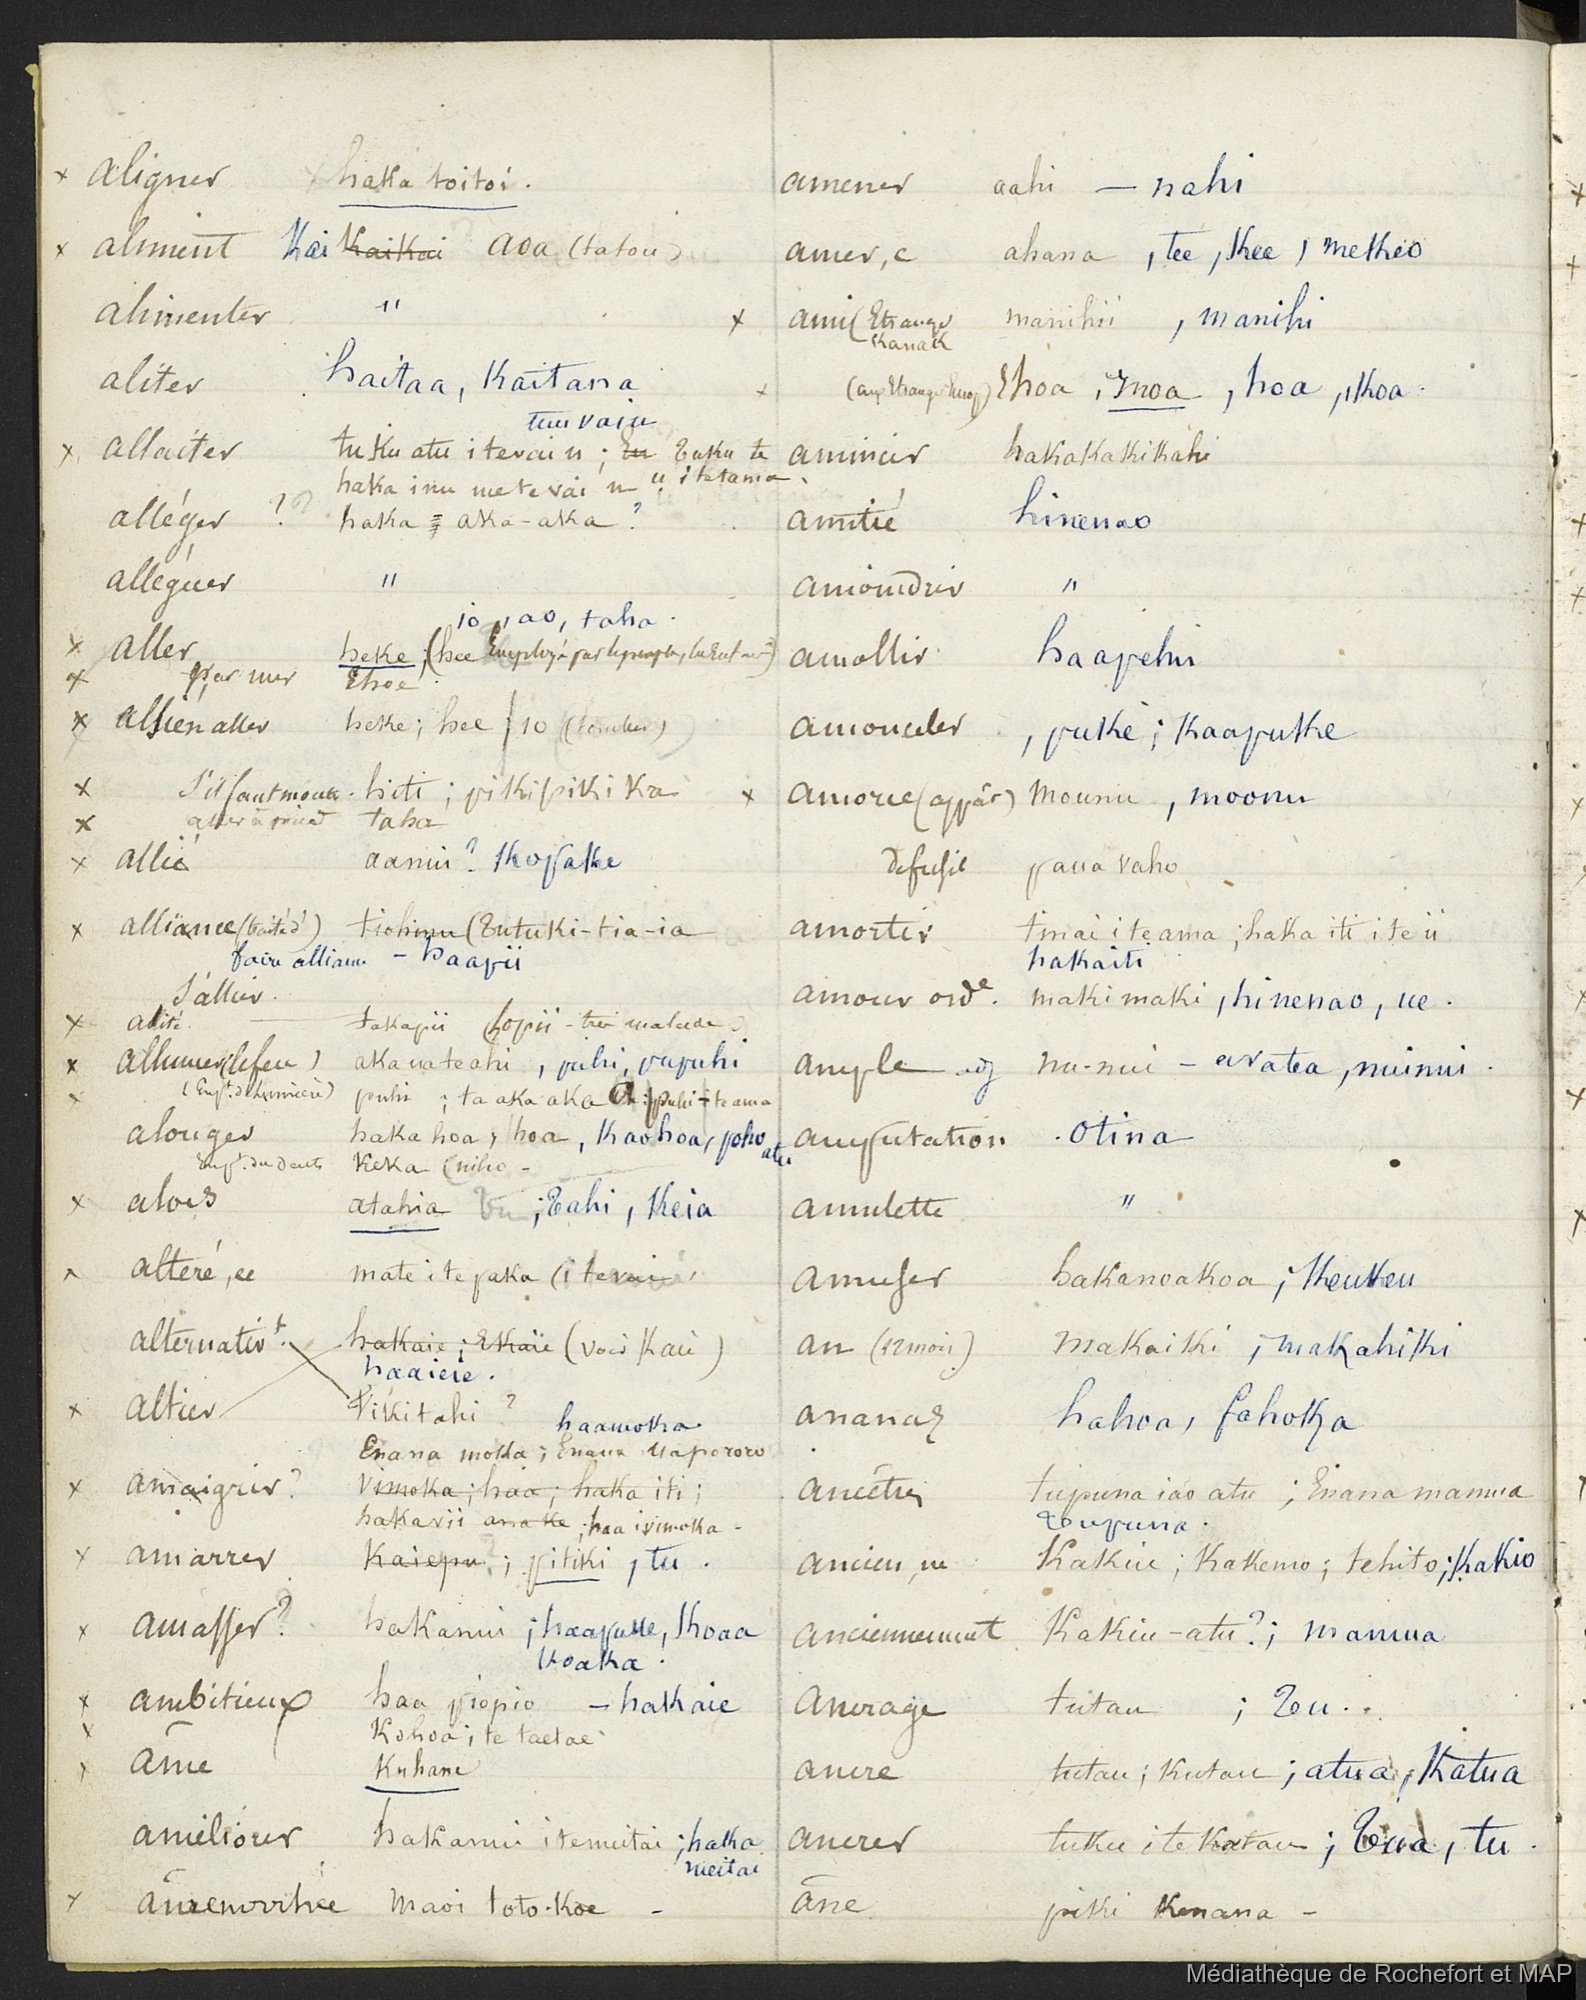 × aligner haka toitoi.
× aliment Kai Kaikai aoa (tatou)
alimenter "
aliter haitaa, Kaitana
tuu vaiu
× allaiter tuku atu i te vai u; tuku te
haka inu me te vai u u i te tama
alléger ? haka aka-aka ?
alléguer "
io, ao, taha.
× aller heke; (hee
× par mer Ehoe
× aller heke; hee io (tomber)
× hiti; pikipiki Ka
× taha
× allié aamui? Kopake
× alliance (traité d') (tutuki-tia-ia
faire alliance - haapii
S'allier.
× alité takapii (hopii - très malade)
× allumer (le feu) aka ua te ahi, puhi, pupuhi
× puhi; ta aka aka puhi i te ama
alonger haka hoa, hoa, Kaohoa, poho
atu
Keka (niho -
× aloès atahia ; tahi, Keia
alteré, ee mate i te paka (i te vai
alternativt. hakaie; Ekaie (voir Kaie)
haaieie.
× altier Vikitahi ?
haamoka.
Enana moka; Enana
× amaigrir? Vimoka; haa; haka iti;
hakavii ana ke; haa ivimoka -
× amarrer Kaiepu?; pitiki, tu.
× amasser? hakamui; haapuke, Koaa
Koaka.
× ambitieux haa piopio - hakaie
Kohoa; te taetae
âme Kuhane
améliorer hakamui i te meitai; haka
meitai
× maoi toto-Koe -
amener aahi - nahi
amer, e ahana, tee, Kee, meKeo
× ami (Etranger manihii, manihi
Kanak
Ehoa, Inoa, hoa, Koa.
amincir hakaKakiKahi
amitié hinenao
amoindrir "
amollir haapehu
amonceler , puke; Kaapuke
× amorce (appât) mounu, moonu
de fusil paua vaho
amortir tinai i te ama; haka iti i te ii
hakaiti
amour orde. makimaki, hinenao, ue.
ample adj nu-nui - avatea, nuinui.
amputation . otina
amulette "
amuser hakanoakoa; Keukeu
an (12 mois) makaiki; makahiki
ananas hahoa, fahoka
ancêtres tupuna iao atu; Enana mamua
toupuna.
ancien, ne Kakiu; Kakemo; tehito; Kakio
anciennement Kakiu-atu?; mamua
ancrage tutau ; tou..
ancre tutau; Kutau; atua, Katua
ancrer tuku i te Katau; toua, tu.
âne piki Kenana -
Médiathèque de Rochefort et MAP